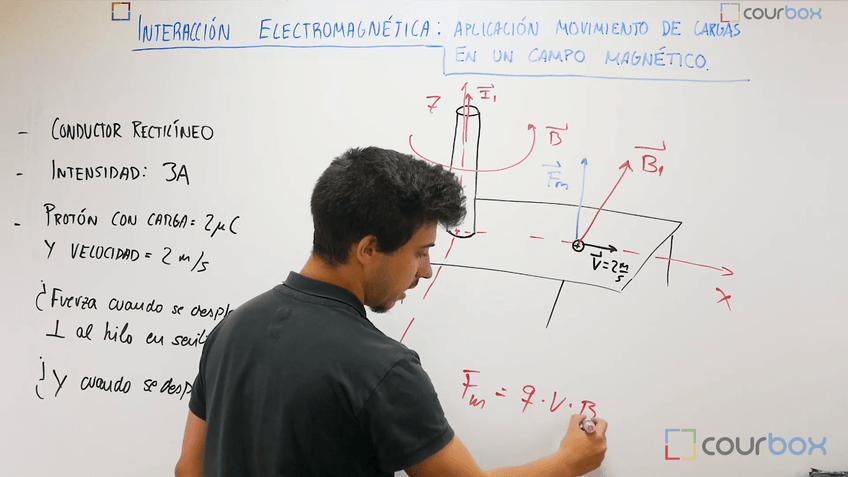 INTERACCIÓN ELECTROMAGNÉTICA: APLICACIÓN MOVIMIENTO DE CARGAS
EN UN CAMPO MAGNÉTICO.
courbox
- CONDUCTOR RECTILÍNEO
- INTENSIDAD: 3A
- PROTÓN CON CARGA = 2μC
Y VELOCIDAD = 2 m/s
¿Fuerza cuando se
⊥ al hilo en
¿Y cuando se
Z
I₁
B
Fm
B₁
V = 2 m/s
X
Fm = q · V · B
courbox